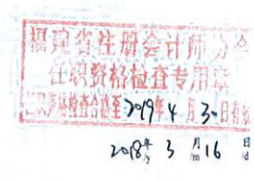 福建省注册会计师协会
任职资格检查专用章
任职资格检查合格至2019年4月30日有效
2018年 3月 16日
/y /m /d